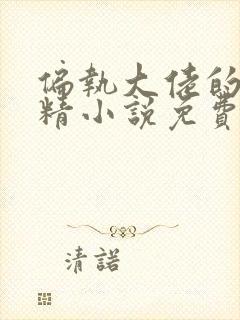 偏執大佬的
精小說免費
清諾